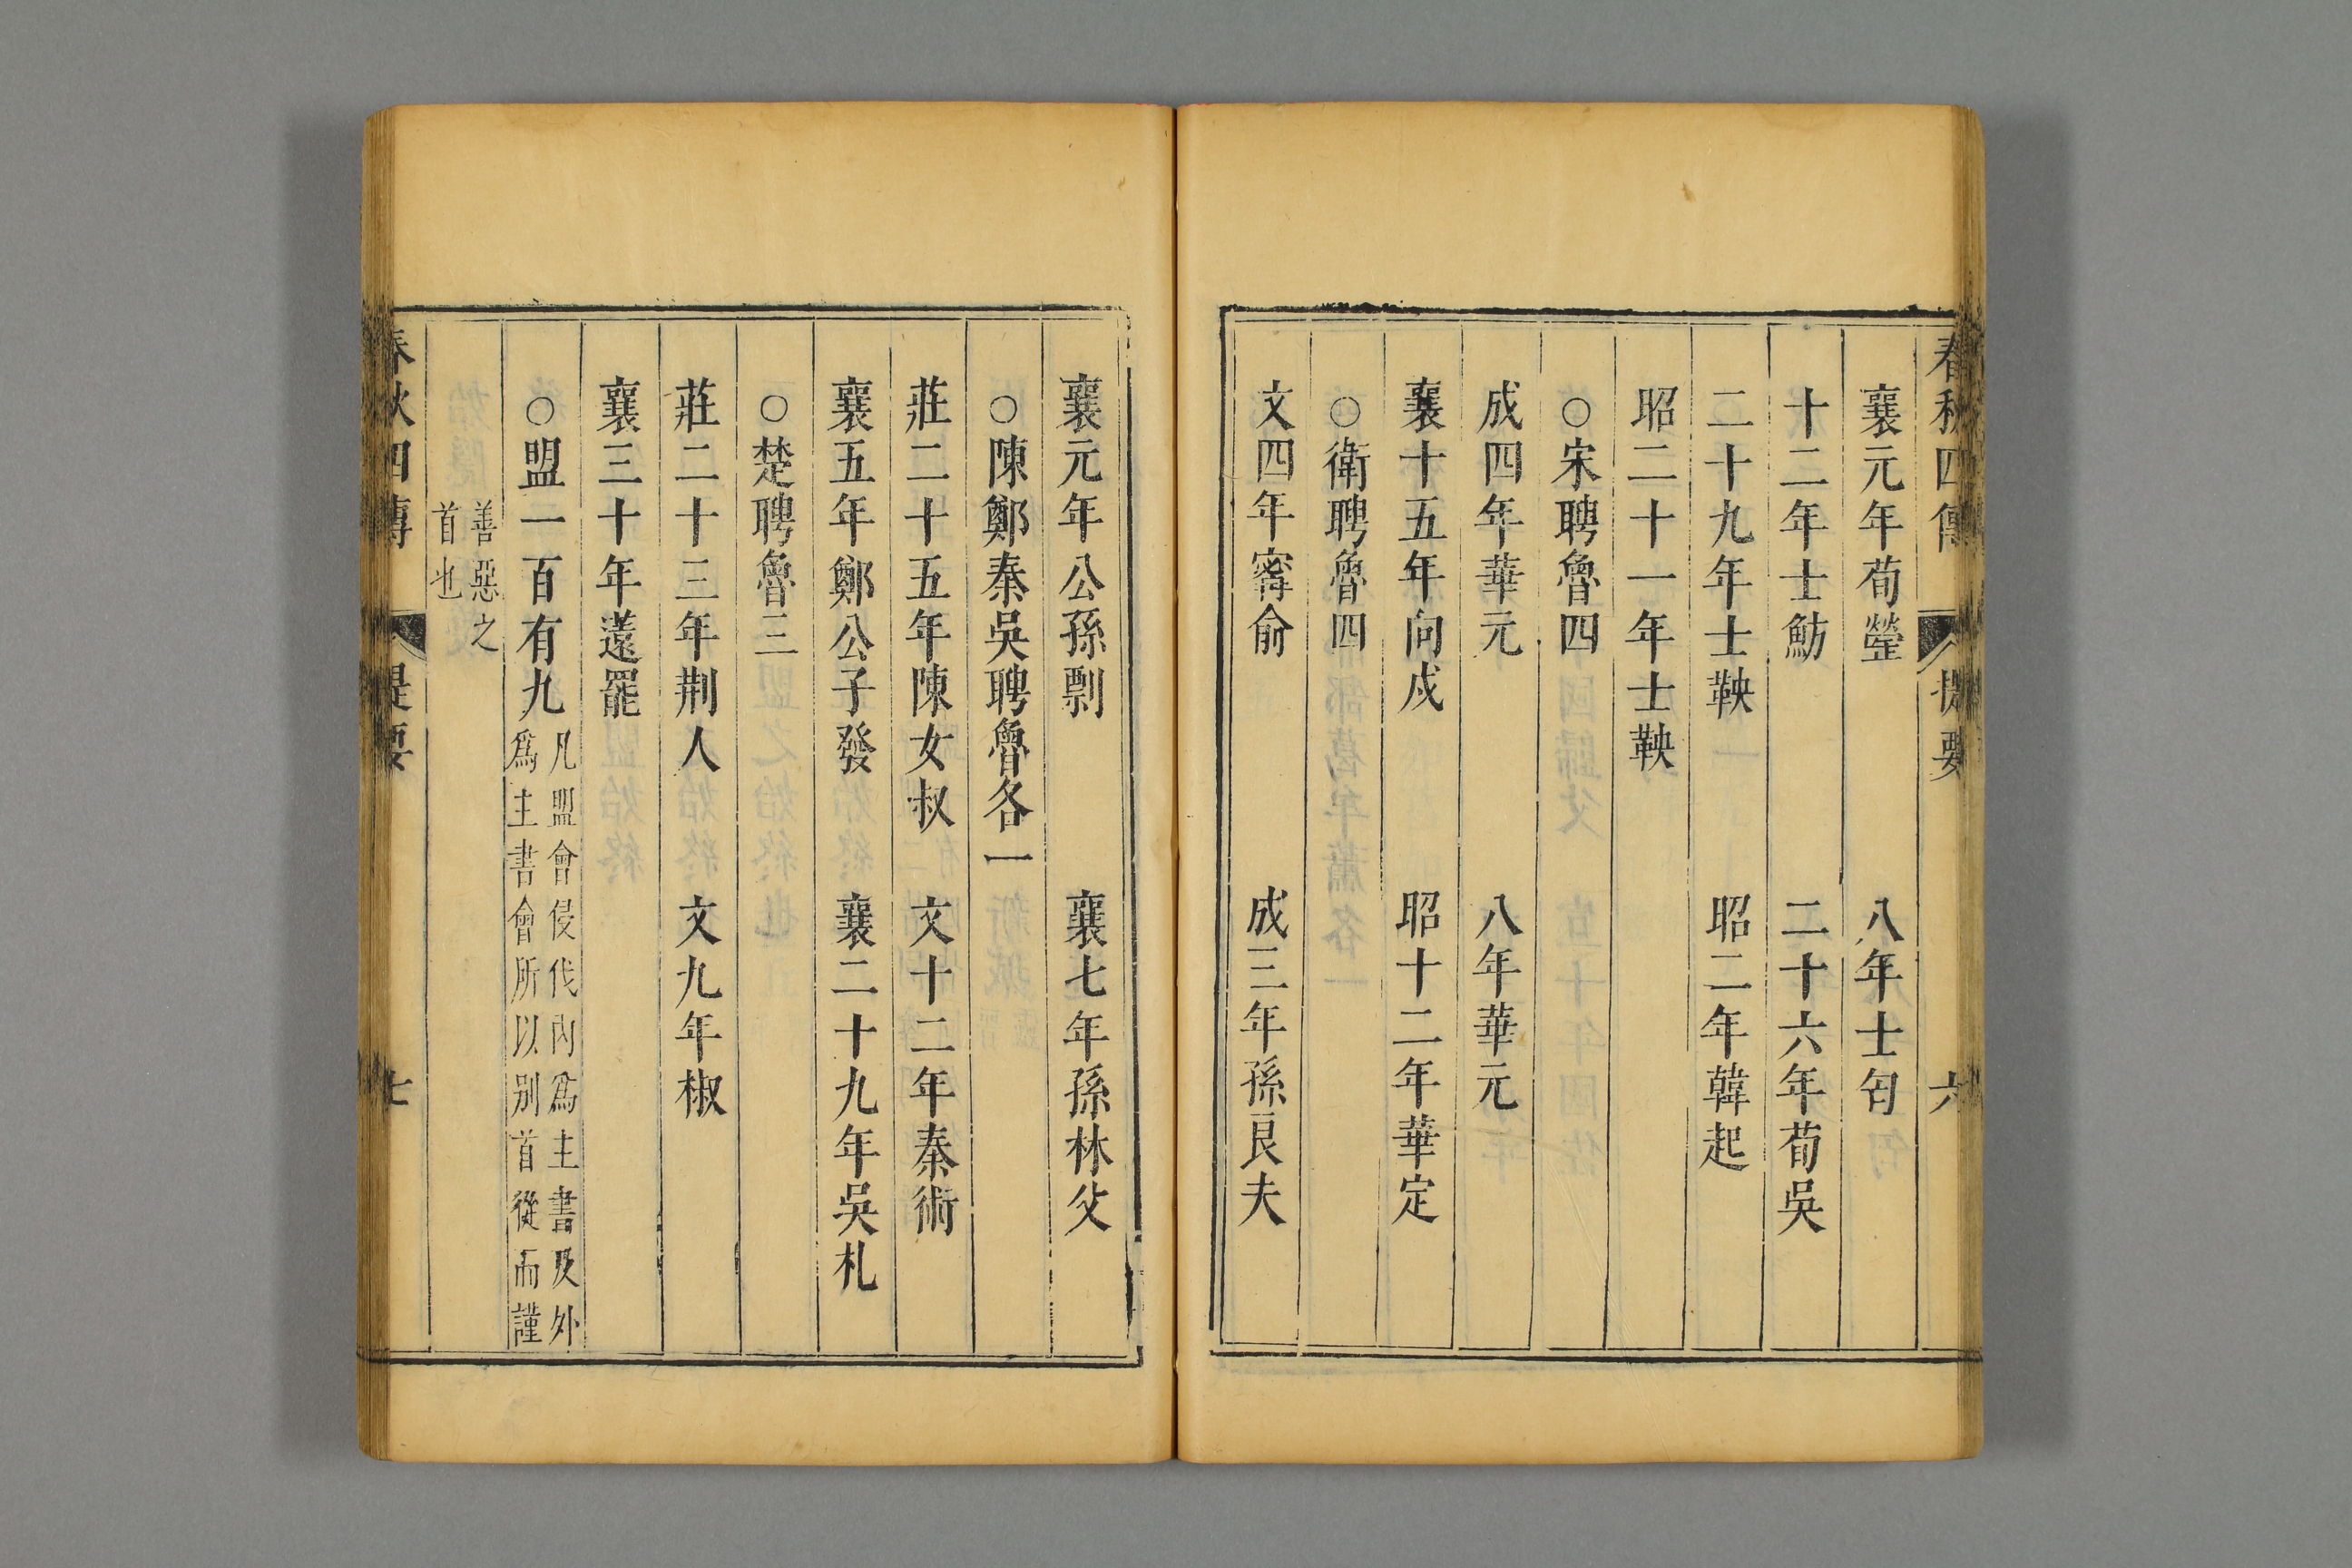 春秋四傳 提要 六
襄元年荀罃 八年士匄
十二年士魴 二十六年荀吳
二十九年士鞅 昭二年韓起
昭二十一年士鞅
○宋聘魯四
成四年華元 八年華元
襄十五年向戌 昭十二年華定
○衛聘魯四
文四年甯俞 成三年孫良夫
襄元年公孫剽 襄七年孫林父
○陳鄭秦吳聘魯各一
莊二十五年陳女叔 文十二年秦術
襄五年鄭公子發 襄二十九年吳札
○楚聘魯三
莊二十三年荆人 文九年椒
襄三十年薳罷
○盟一百有九 凡盟會侵伐內爲主書及外
爲主書會所以别首從而謹
善惡之
首也
春秋四傳 提要 七